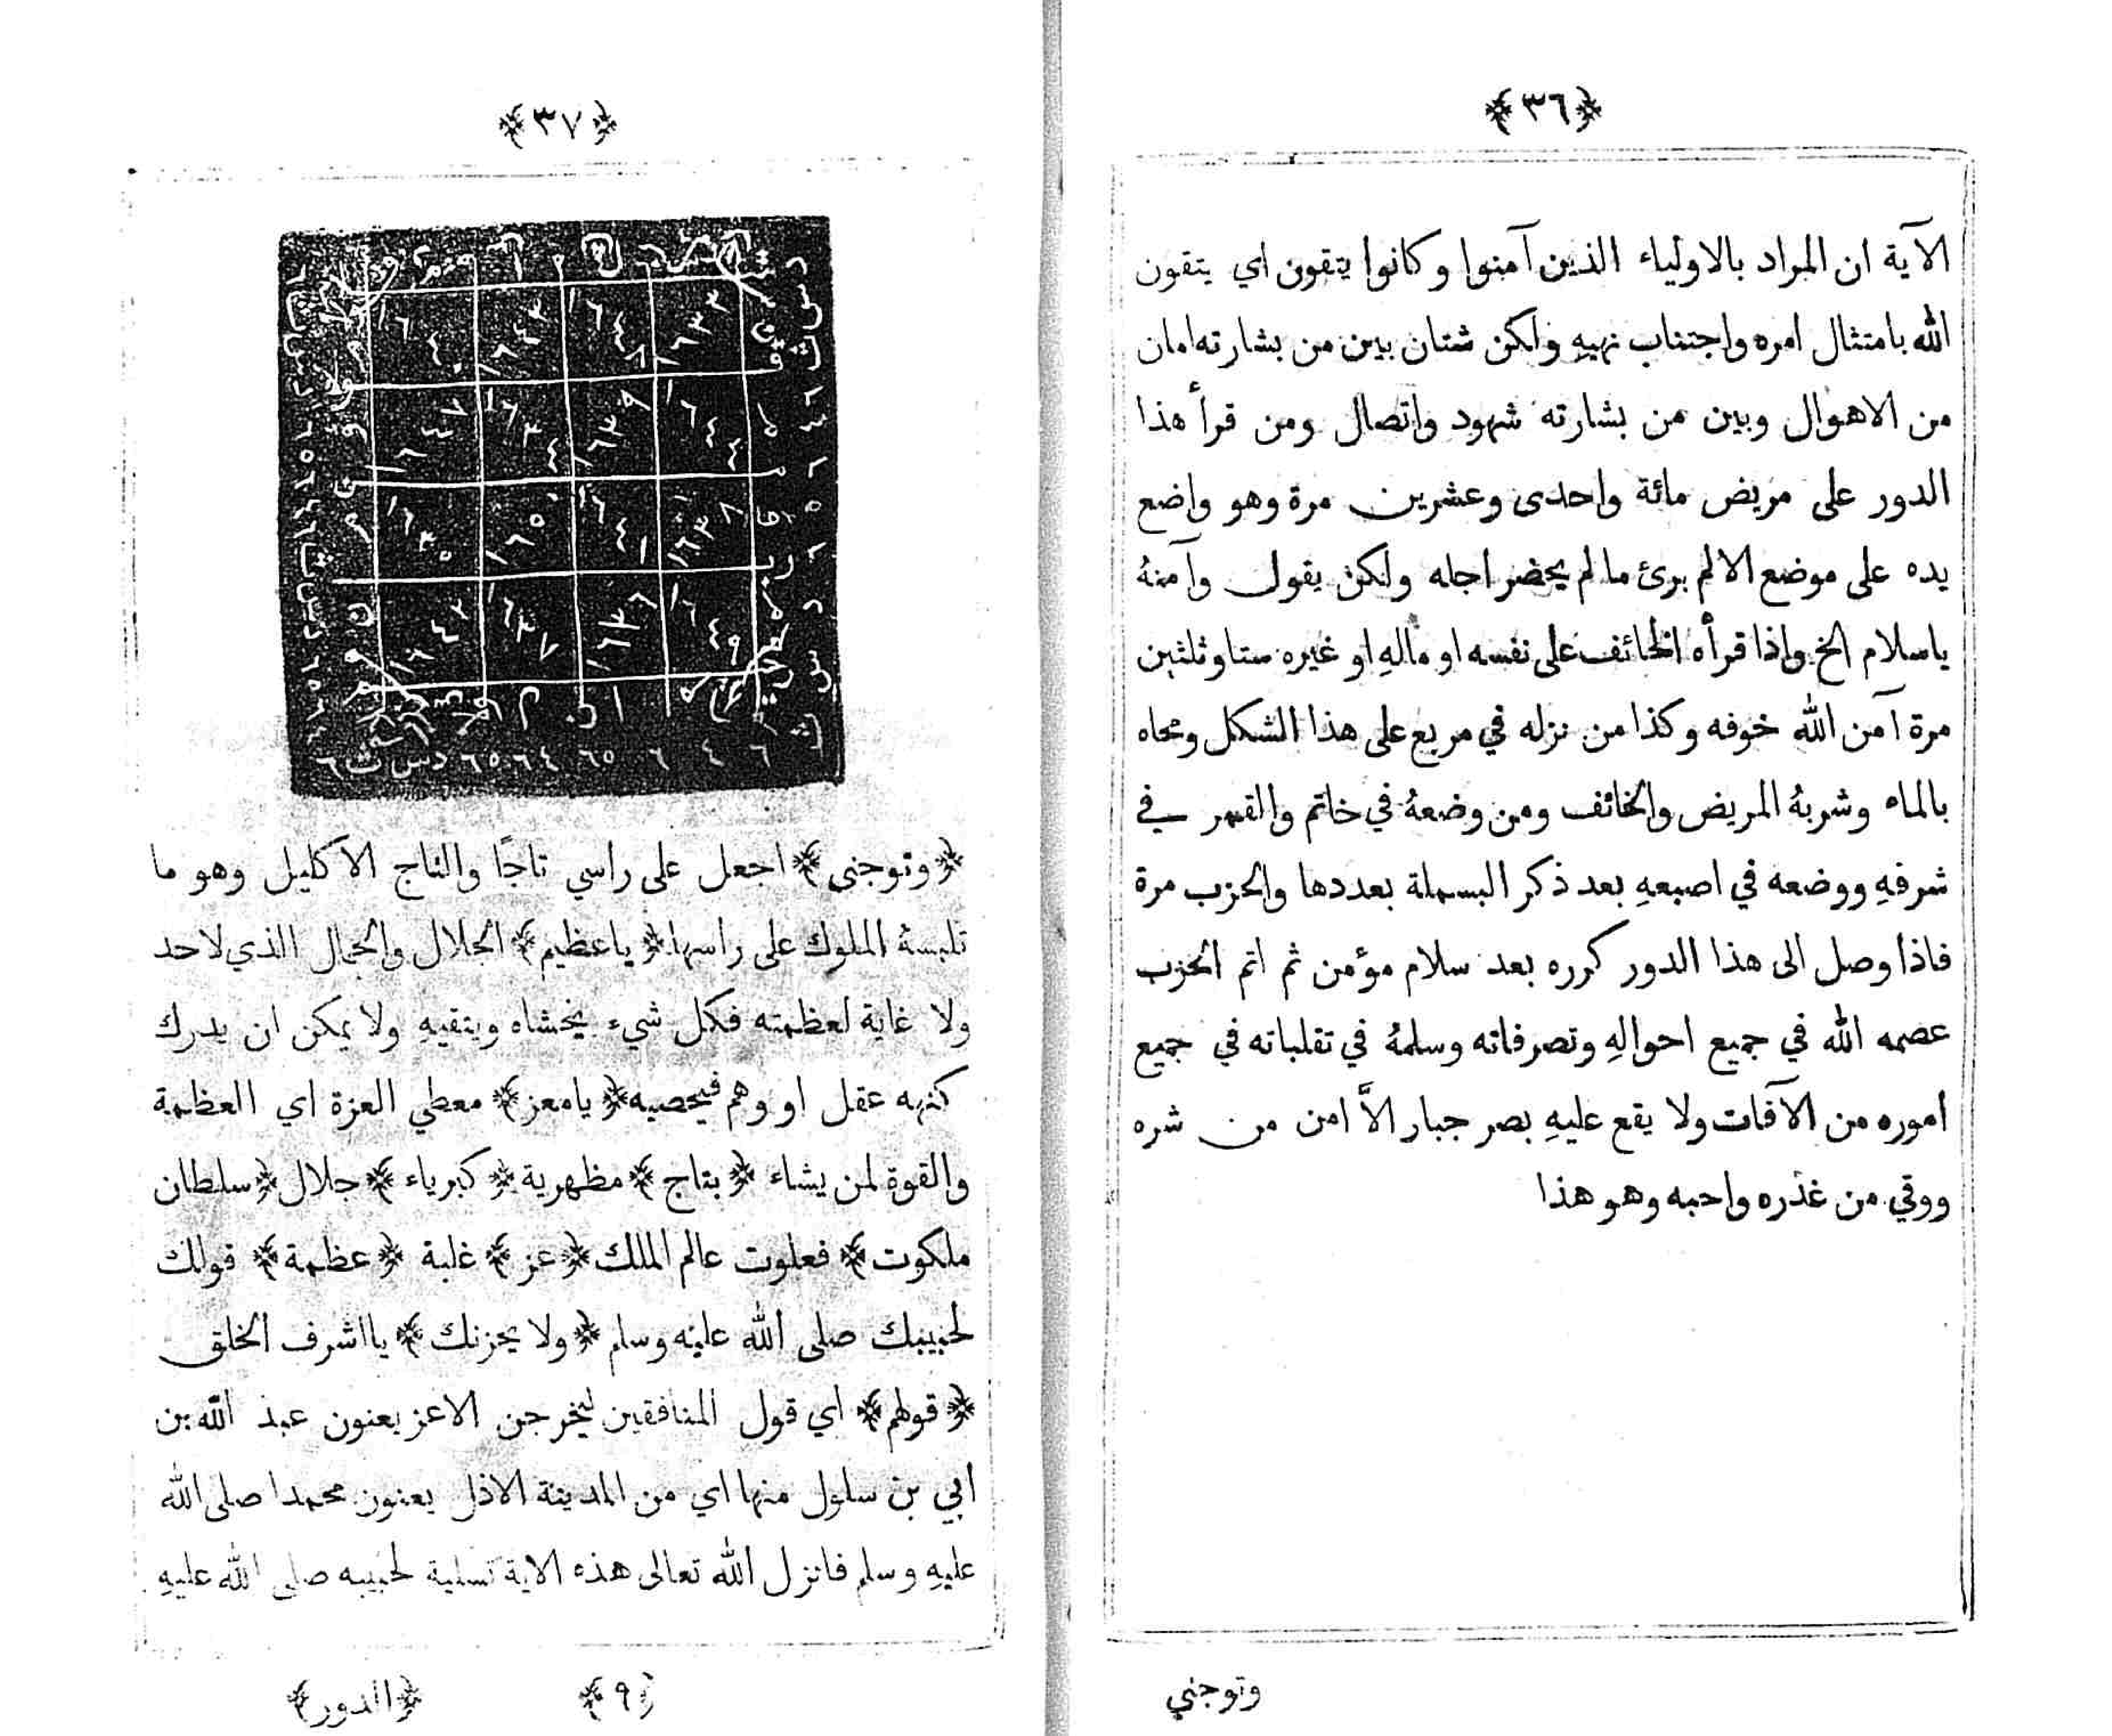 ﴿٣٦﴾
الآية ان المراد بالاولياء الذين آمنوا وكانوا يتقون اي يتقون
الله بامتثال امره واجتناب نهيهِ ولكن شتان بين من بشارته امان
من الاهوال وبين من بشارته شهود واتصال ومن قرأ هذا
الدور على مريض مائة واحدى وعشرين مرة وهو واضع
يده على موضع الالم برئ ما لم يحضر اجله ولكن يقول وآمنهُ
ياسلام الخ واذا قرأه الخائف على نفسه او مالهِ او غيره ستا وثلثين
مرة آمن الله خوفه وكذا من نزله في مربع على هذا الشكل ومحاه
بالماء وشربهُ المريض والخائف ومن وضعهُ في خاتم والقمر في
شرفهِ ووضعه في اصبعهِ بعد ذكر البسملة بعددها والحزب مرة
فاذا وصل الى هذا الدور كرره بعد سلام مؤمن ثم اتم الحزب
عصمه الله في جميع احوالهِ وتصرفاته وسلمهُ في تقلباته في جميع
اموره من الآفات ولا يقع عليهِ بصر جبار الاَّ امن من شره
ووقي من غدره واحبه وهو هذا
وتوجني
﴿٣٧﴾
﴿وتوجني﴾ اجعل على راسي تاجًا والتاج الاكليل وهو ما
تلبسهُ الملوك على راسها ﴿ياعظيم﴾ الجلال والجمال الذي لاحد
ولا غاية لعظمته فكل شيء يخشاه ويتقيهِ ولا يمكن ان يدرك
كنهه عقل او وهم فيحصيه ﴿يامعز﴾ معطي العزة اي العظمة
والقوة لمن يشاء ﴿بتاج﴾ مظهرية ﴿كبرياء﴾ جلال ﴿سلطان
ملكوت﴾ فعلوت عالم الملك ﴿عز﴾ غلبة ﴿عظمة﴾ قولك
لحبيبك صلى الله عليه وسلم ﴿ولا يحزنك﴾ يااشرف الخلق
﴿قولهم﴾ اي قول المنافقين ليخرجن الاعز يعنون عبد الله بن
ابي بن سلول منها اي من المدينة الاذل يعنون محمدا صلى الله
عليهِ وسلم فانزل الله تعالى هذه الاية تسلية لحبيبه صلى الله عليهِ
﴿٩﴾ ﴿الدور﴾